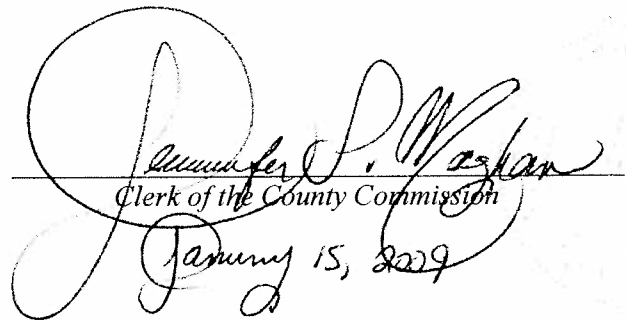 Jennifer S. Maghan
Clerk of the County Commission
January 15, 2009